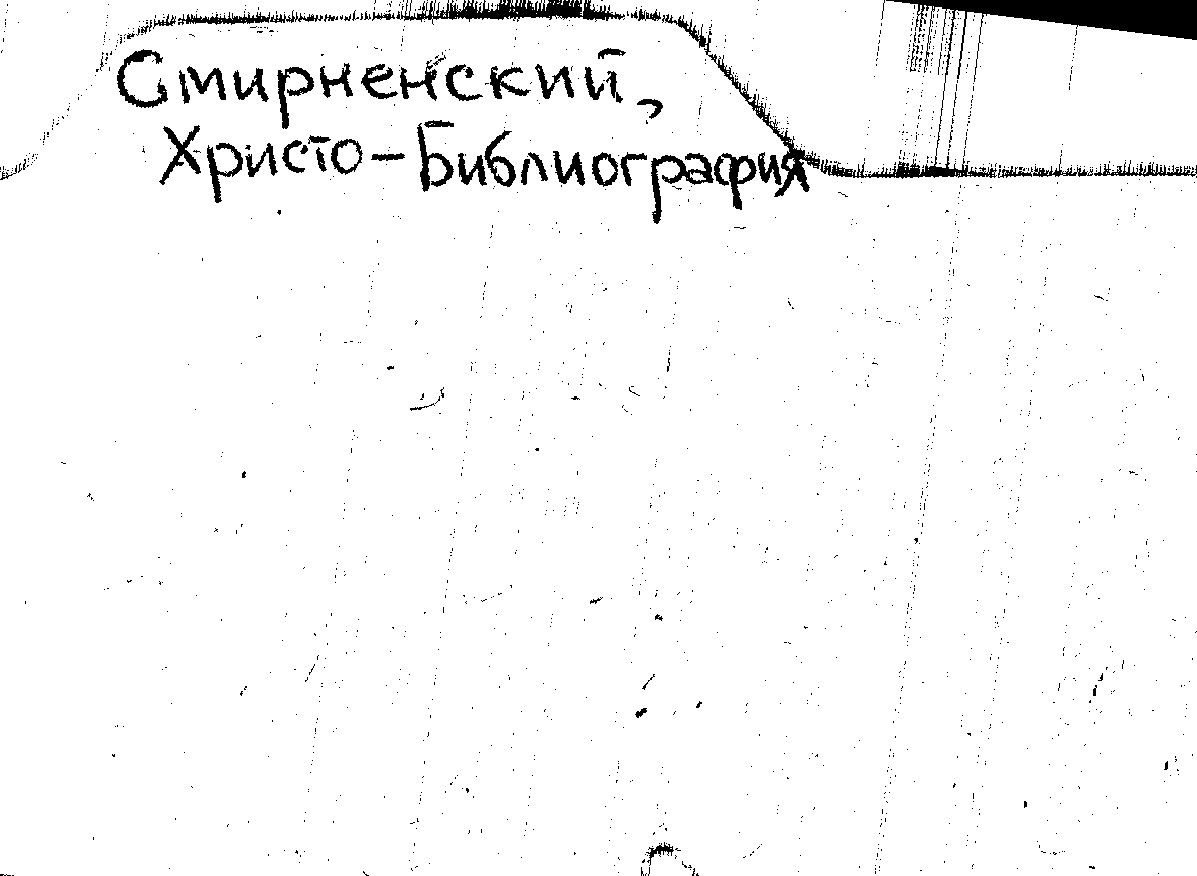 Смирненский,
Христо - Библиография